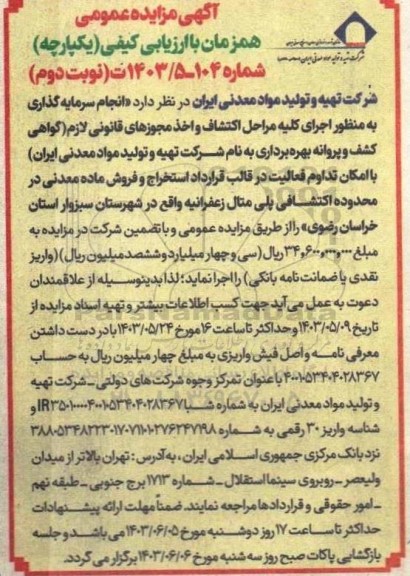 آگهی مزایده عمومی
همزمان با ارزیابی کیفی (یکپارچه)
شماره ۱۰۴-۱۴۰۳/۵ت (نوبت دوم)
شرکت تهیه و تولید مواد معدنی ایران در نظر دارد «انجام سرمایه گذاری
به منظور اجرای کلیه مراحل اکتشاف و اخذ مجوزهای قانونی لازم (گواهی
کشف و پروانه بهره برداری به نام شرکت تهیه و تولید مواد معدنی ایران)
با امکان تداوم فعالیت در قالب قرارداد استخراج و فروش ماده معدنی در
محدوده اکتشافی پلی متال زعفرانیه واقع در شهرستان سبزوار استان
خراسان رضوی» را از طریق مزایده عمومی و با تضمین شرکت در مزایده به
مبلغ ۳۴,۶۰۰,۰۰۰,۰۰۰ ریال (سی و چهار میلیارد و ششصد میلیون ریال) (واریز
نقدی یا ضمانت نامه بانکی) را اجرا نماید؛ لذا بدینوسیله از علاقمندان
دعوت به عمل می آید جهت کسب اطلاعات بیشتر و تهیه اسناد مزایده از
تاریخ ۱۴۰۳/۰۵/۰۹ و حداکثر تا ساعت ۱۶ مورخ ۱۴۰۳/۰۵/۲۴ با در دست داشتن
معرفی نامه و اصل فیش واریزی به مبلغ چهار میلیون ریال به حساب
۴۰۰۱۰۵۳۴۰۴۰۲۸۳۶۷ با عنوان تمرکز وجوه شرکت های دولتی - شرکت تهیه
و تولید مواد معدنی ایران به شماره شبا IR۳۵۰۱۰۰۰۰۴۰۰۱۰۵۳۴۰۴۰۲۸۳۶۷ و
شناسه واریز ۳۰ رقمی به شماره ۳۸۸۰۵۳۴۸۲۲۳۰۱۷۰۷۱۱۰۱۰۲۷۶۲۴۷۱۹۸
نزد بانک مرکزی جمهوری اسلامی ایران، به آدرس: تهران بالاتر از میدان
ولیعصر - روبروی سینما استقلال - شماره ۱۷۱۳ برج جنوبی - طبقه نهم
- امور حقوقی و قراردادها مراجعه نمایند. ضمناً مهلت ارائه پیشنهادات
حداکثر تا ساعت ۱۷ روز دوشنبه مورخ ۱۴۰۳/۰۶/۰۵ می باشد و جلسه
بازگشایی پاکات صبح روز سه شنبه مورخ ۱۴۰۳/۰۶/۰۶ برگزار می گردد.